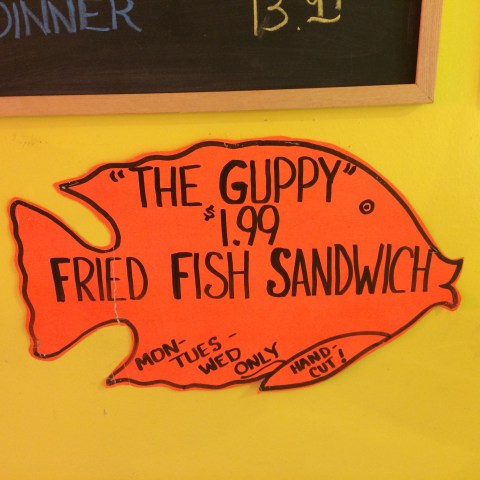 DINNER
"THE GUPPY"
$1.99
FRIED FISH SANDWICH
MON-
TUES-
WED ONLY
HAND-
CUT!